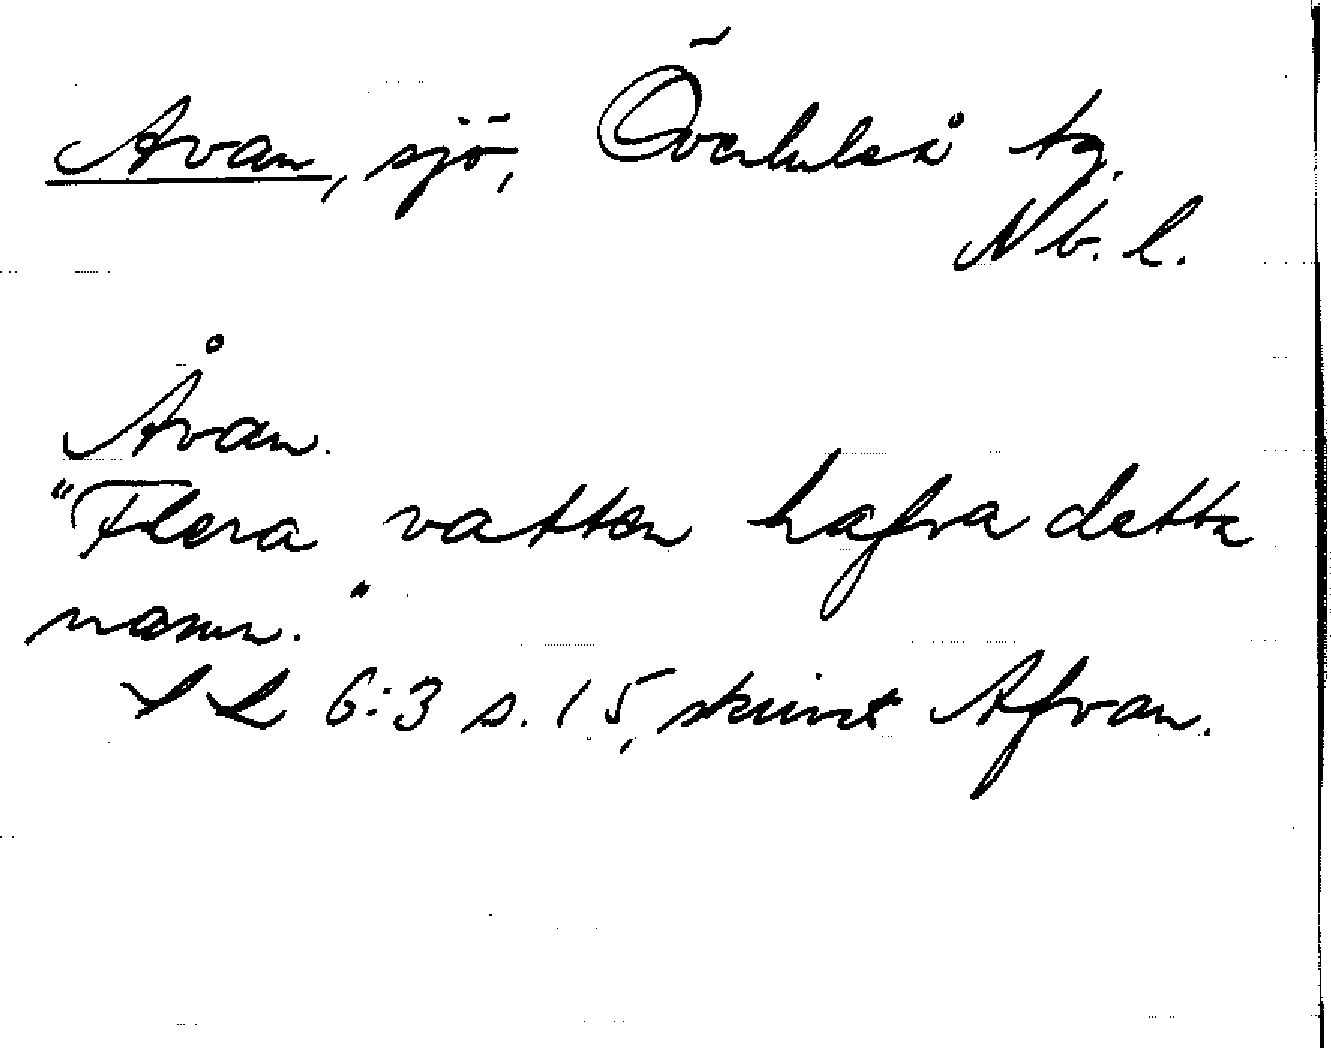 Avan, sjö, Överluleå tg.
Nb. l.
Åvan.
"Flera vatten hafva detta
namn."
SL 6:3 s. 15, skrivet Afvan.